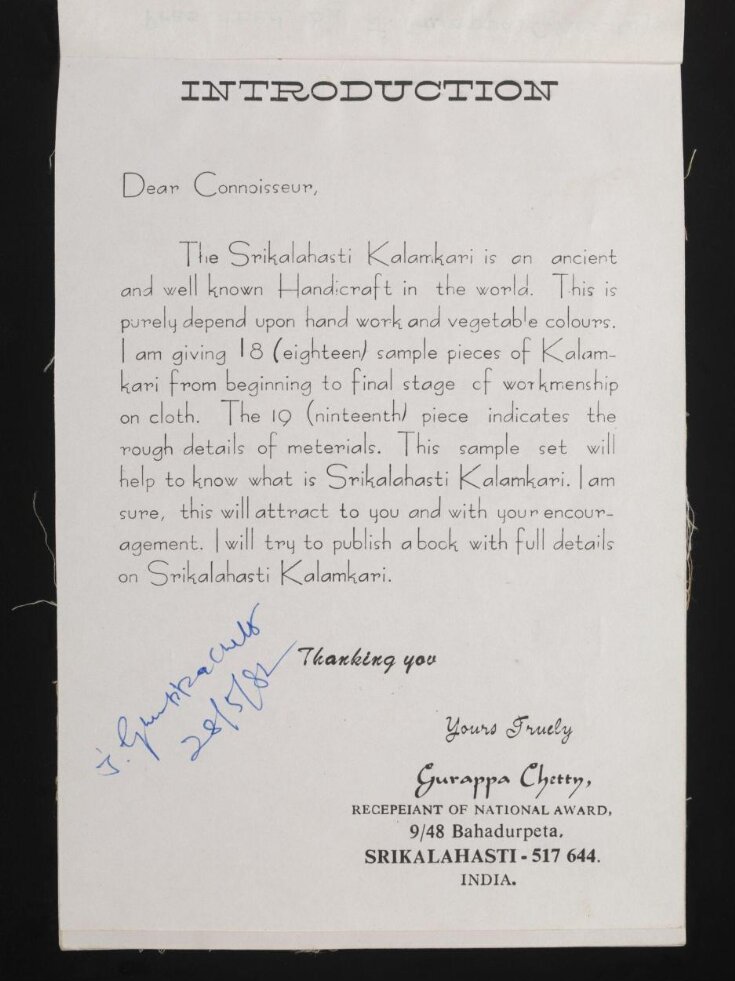 INTRODUCTION
Dear Connoisseur,
The Srikalahasti Kalamkari is an ancient
and well known Handicraft in the world. This is
purely depend upon hand work and vegetable colours.
I am giving 18 (eighteen) sample pieces of Kalam-
kari from beginning to final stage of workmenship
on cloth. The 19 (ninteenth) piece indicates the
rough details of meterials. This sample set will
help to know what is Srikalahasti Kalamkari. I am
sure, this will attract to you and with your encour-
agement. I will try to publish a book with full details
on Srikalahasti Kalamkari.
Thanking you
J. Gurappa Chetty
28/5/82
Yours Truely
Gurappa Chetty,
RECEPEIANT OF NATIONAL AWARD,
9/48 Bahadurpeta,
SRIKALAHASTI - 517 644.
INDIA.